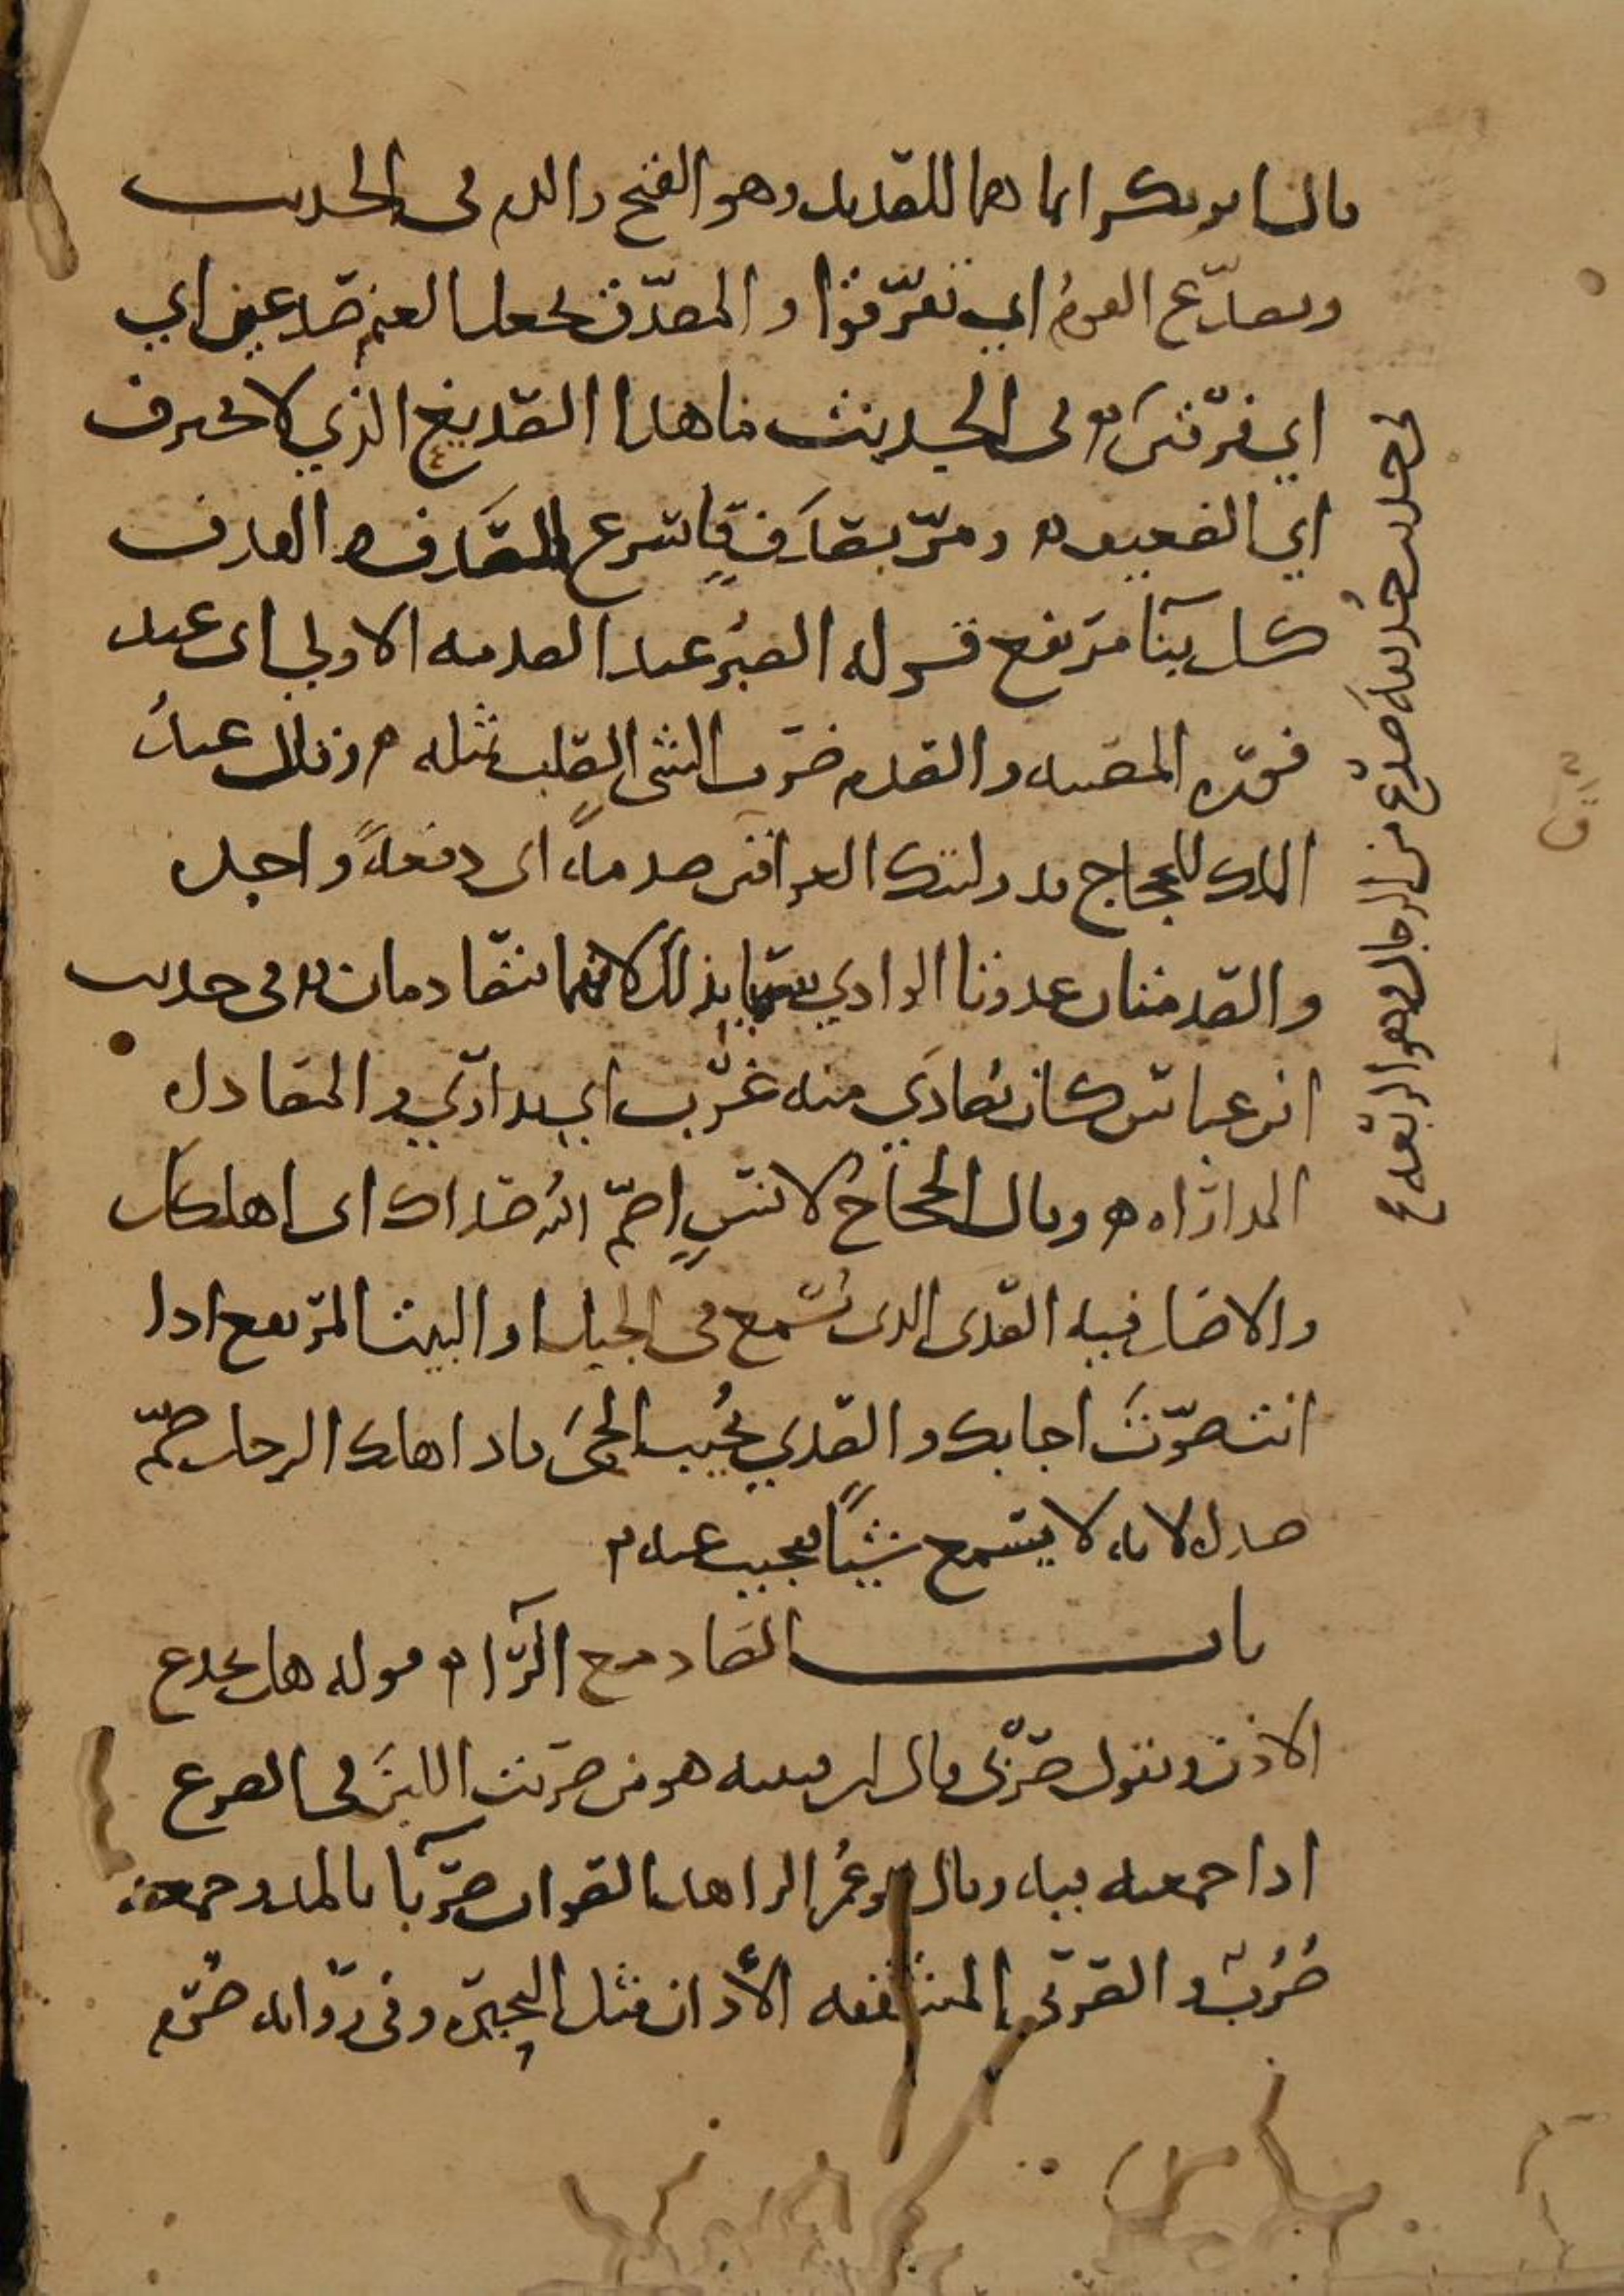 قال ابو بكر انما هما للصديد وهو القيح والدم في الحديث
وتصدّع القومُ اي تفرّقوا والمصدّق يجعل الغنم صدعين اي
اي فرقتين في الحديث ما هذا الصديغ الذي لا يحترف
اي الضعيف ومرّ بصدَفٍ فاسرع الصَّدَف الهدف
كل بناء مرتفع قوله الصبرُ عند الصدمه الاولى اى عند
فورة المصيبه والصدم ضرب الشى الصلب بمثله وكتب عبدُ
الملك للحجاج قد وليتك العراقين صدمةً اى دفعةً واحده
والصدمتان عدوتا الوادي سميتا بذلك لانهما تتصادمان في حديث
ابن عباس كان يُصادي منه غَرْب اي يداري والمصاداه
المداراه وقال الحجاج لانسٍ اصمّ اللهُ صداك اى اهلكك
والاصل فيه الصدى الذى تسمع في الجبل او البيت المرتفع اذا
انت صوّتَّ اجابك والصدي يُجيب الحيّ فاذا هلك الرجل صمّ
صداه لانه لا يسمع شيئًا فيجيب عنه
باب الصاد مع الرّاء قوله هل تجدع
الاذن وتقول صَرْبى قال ابن قتيبه هو من صربت اللبن في الضرع
اذا جمعته فيه وقال ابو عُمر الزاهد الصواب صرباء بالمد وجمعه
صُرُبٌ والصربى المشققه الآذان مثل البحيرة وفي روايه صُرُم
في حديث حُذيفةَ صدَعٌ من الرجال وهو الربعه